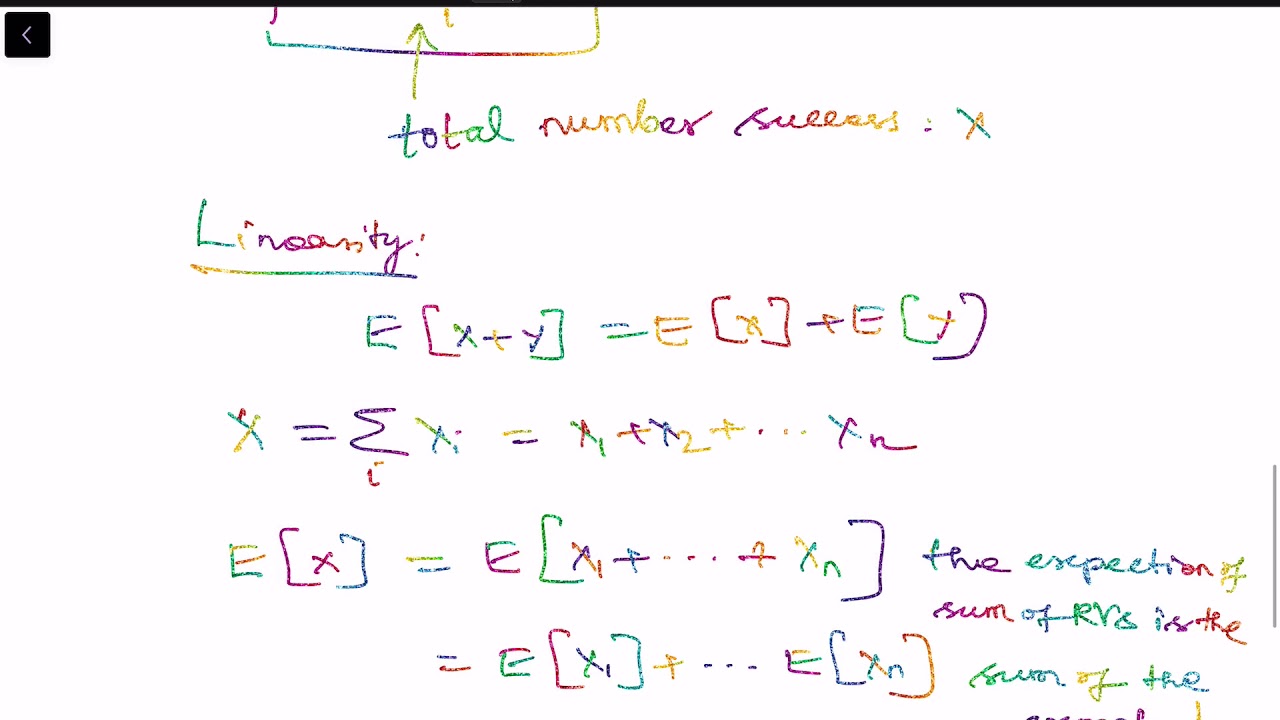 total number success : X
Linearity:
E[X+Y] = E[X] + E[Y]
X = ∑ Xi = X1 + X2 + ... Xn
i
E[X] = E[X1 + ... + Xn] the expection of
sum of RVs is the
= E[X1] + ... E[Xn] sum of the